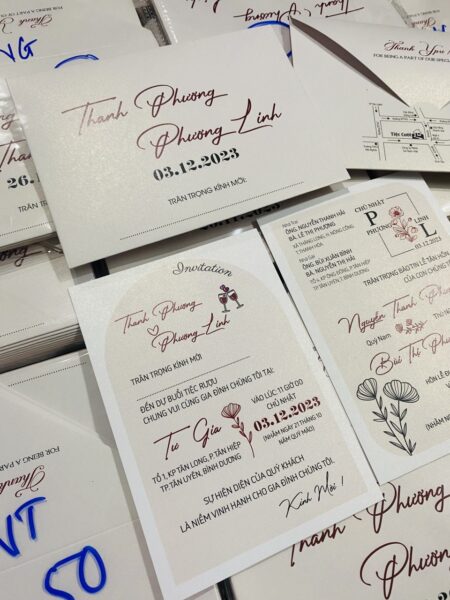 FOR BEING A PART OF
NG
26.
Thanh Phương
Phương Linh
03.12.2023
TRÂN TRỌNG KÍNH MỜI:
Thank You
FOR BEING A PART OF OUR SPEC
Tiệc Cưới
Invitation
Thanh Phương
Phương Linh
TRÂN TRỌNG KÍNH MỜI
ĐẾN DỰ BUỔI TIỆC RƯỢU
CHUNG VUI CÙNG GIA ĐÌNH CHÚNG TÔI TẠI:
Tư Gia
TỔ 1, KP TÂN LONG, P.TÂN HIỆP
TP.TÂN UYÊN, BÌNH DƯƠNG
VÀO LÚC: 11 GIỜ 00
CHỦ NHẬT
03.12.2023
(NHẰM NGÀY 21 THÁNG 10
NĂM QUÝ MÃO)
SỰ HIỆN DIỆN CỦA QUÝ KHÁCH
LÀ NIỀM VINH HẠNH CHO GIA ĐÌNH CHÚNG TÔI.
Kính Mời !
NHÀ TRAI
ÔNG. NGUYỄN THANH HẢI
BÀ. LÊ THỊ PHƯỢNG
T.THANH HÓA
NHÀ GÁI
ÔNG. BÙI XUÂN BÌNH
BÀ. NGUYỄN THỊ HẢI
TP.TÂN UYÊN, T.BÌNH DƯƠNG
CHỦ NHẬT
P
PHƯƠNG
LINH
L
03.12.2023
TRÂN TRỌNG BÁO TIN LỄ TÂN HÔN
CỦA CON CHÚNG
Nguyễn Thanh Phương
Quý Nam
Bùi Thị Phương
HÔN LỄ
FOR BEING A PA
VT
50
Thanh Phương
Phương